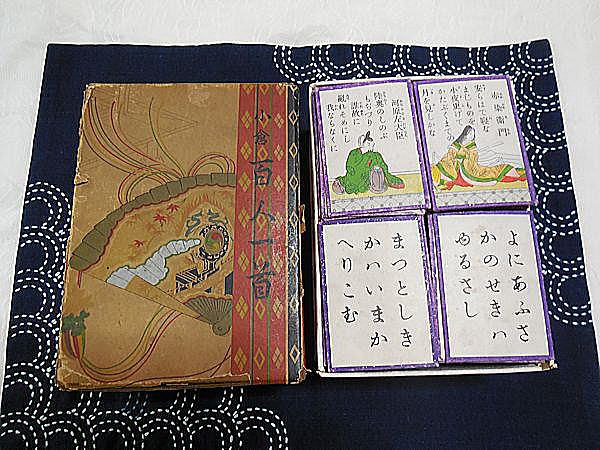 小倉百人一首
河原左大臣
陸奥のしのぶ
誰故に
亂れそめにし
我ならなくに
赤染衛門
安らはで寝な
ましものを
小夜更けて
かたぶくまでの
月を見しかな
まつとしき
かハいまか
へりこむ
よにあふさ
かのせきハ
ゆるさし